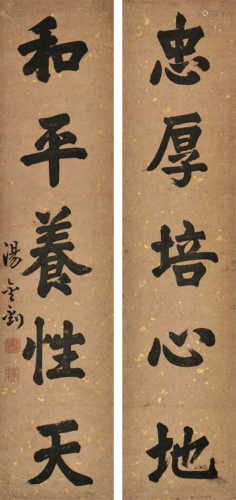 忠厚培心地
和平養性天
湯金釗